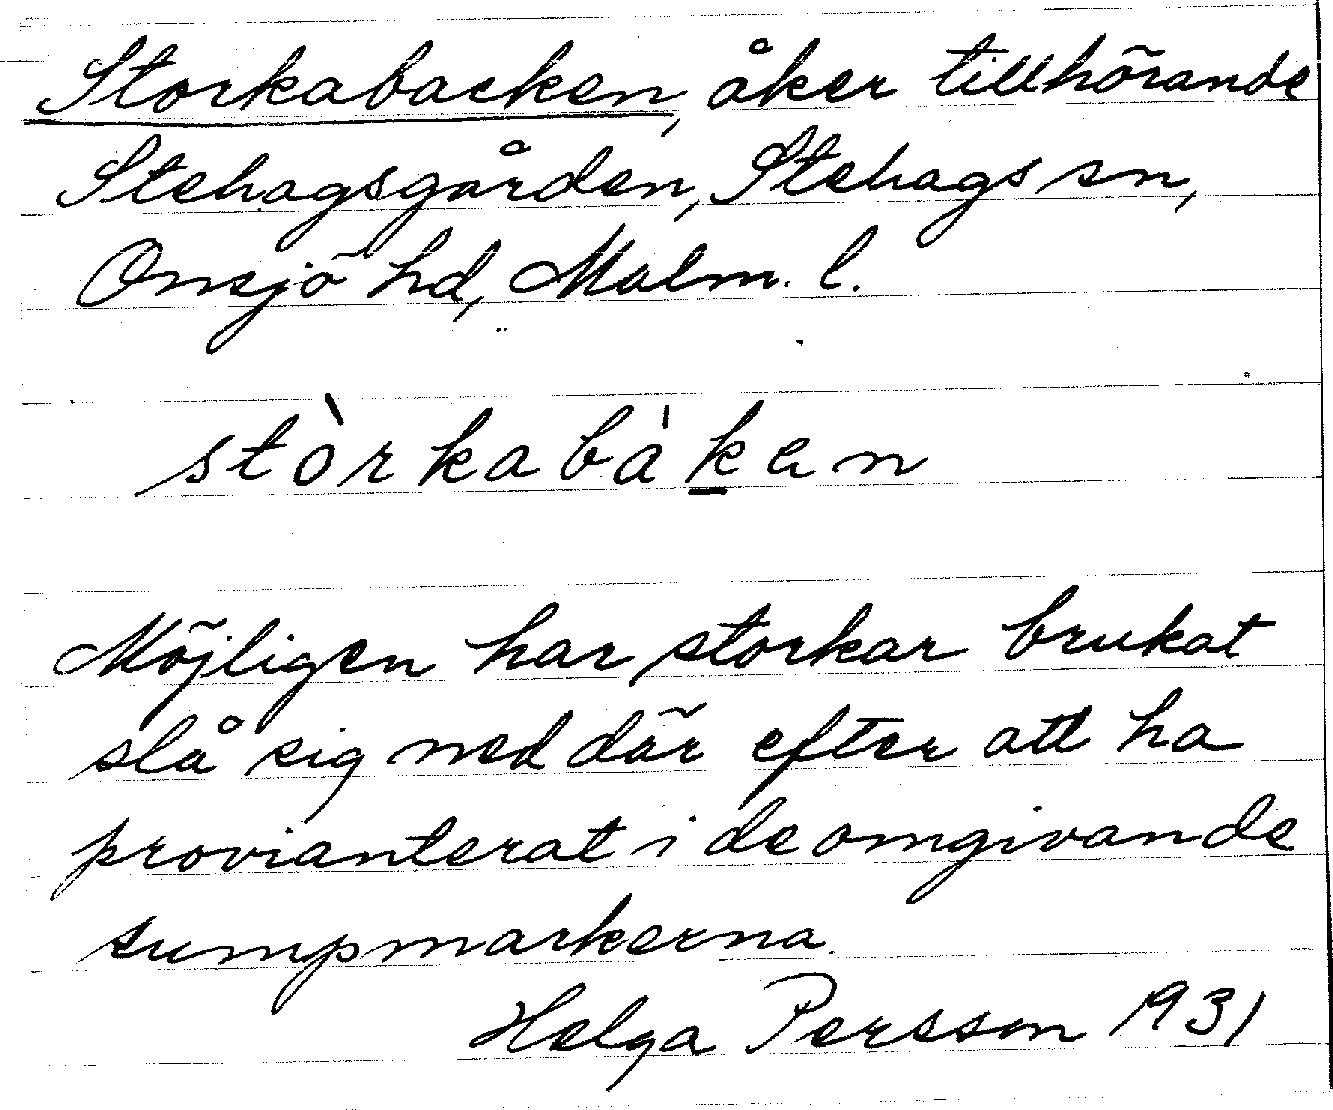 Storkabacken, åker tillhörande
Stehagsgården, Stehags sn,
Onsjö hd, Malm. l.
stòrkabàken
Möjligen har storkar brukat
slå sig ned där efter att ha
provianterat i de omgivande
sumpmarkerna.
Helga Persson 1931